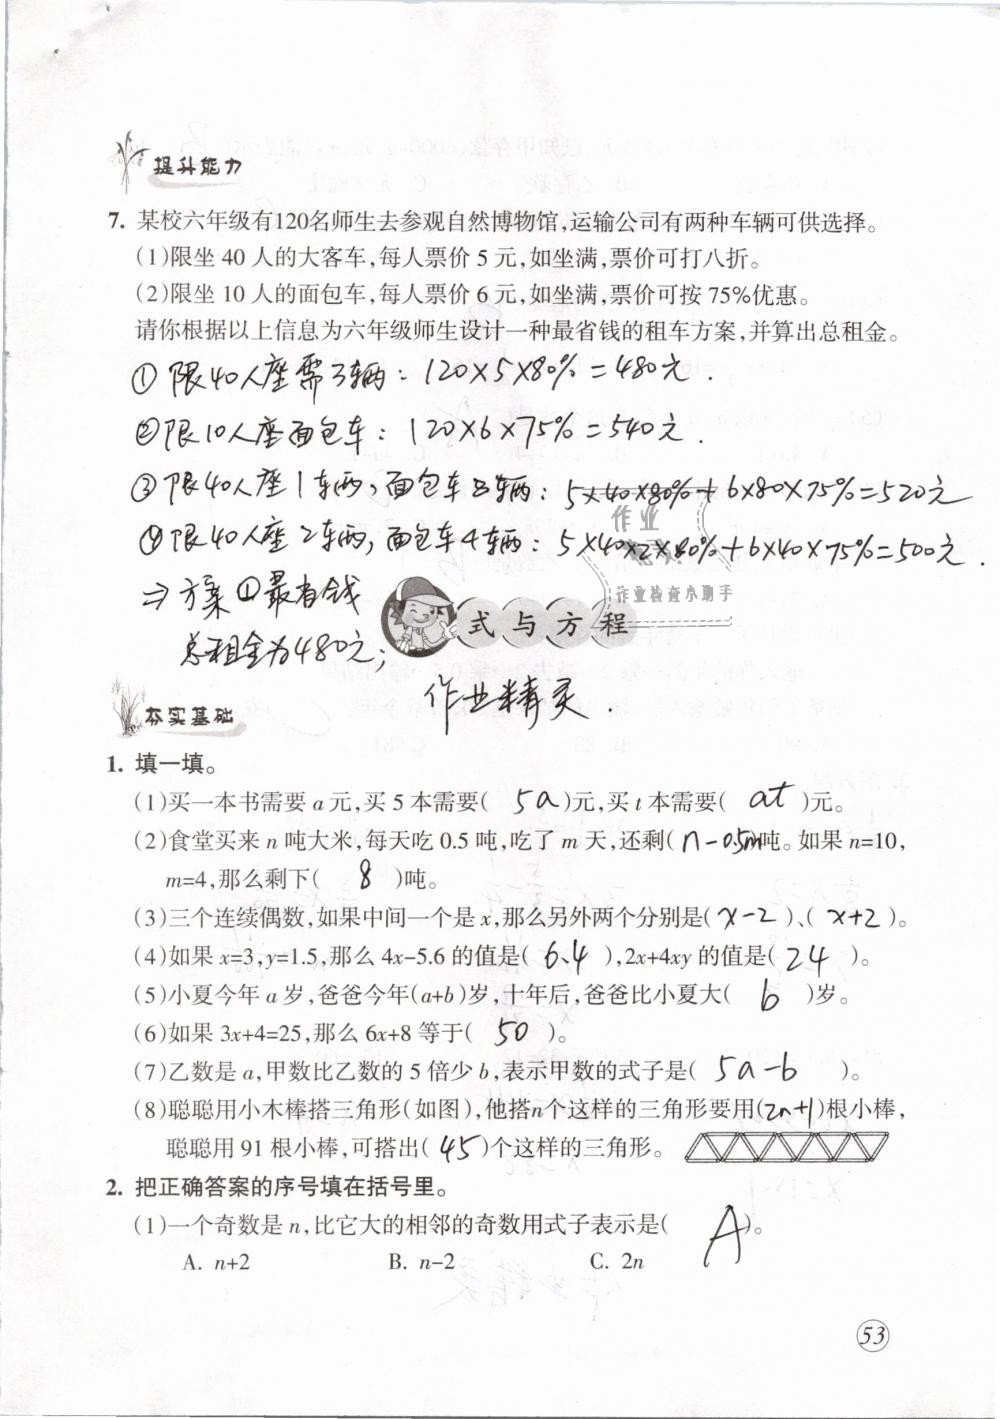 提升能力
7. 某校六年级有120名师生去参观自然博物馆,运输公司有两种车辆可供选择。
(1)限坐 40 人的大客车,每人票价 5 元,如坐满,票价可打八折。
(2)限坐 10 人的面包车,每人票价 6 元,如坐满,票价可按 75%优惠。
请你根据以上信息为六年级师生设计一种最省钱的租车方案,并算出总租金。
①限40人座需3辆：120×5×80%=480元.
②限10人座面包车：120×6×75%=540元.
③限40人座1车辆,面包车8辆：5×40×80%+6×80×75%=520元
④限40人座2车辆,面包车4辆：5×40×2×80%+6×40×75%=500元.
⇒方案①最省钱
总租金为480元;
作业
作业检查小助手
式与方程
作业精灵.
夯实基础
1. 填一填。
(1)买一本书需要 a 元,买 5 本需要( 5a )元,买 t 本需要( at )元。
(2)食堂买来 n 吨大米,每天吃 0.5 吨,吃了 m 天,还剩( n-0.5m )吨。如果 n=10,
m=4,那么剩下( 8 )吨。
(3)三个连续偶数,如果中间一个是 x,那么另外两个分别是( x-2 )、( x+2 )。
(4)如果 x=3,y=1.5,那么 4x-5.6 的值是( 6.4 ),2x+4xy 的值是( 24 )。
(5)小夏今年 a 岁,爸爸今年(a+b)岁,十年后,爸爸比小夏大( b )岁。
(6)如果 3x+4=25,那么 6x+8 等于( 50 )。
(7)乙数是 a,甲数比乙数的 5 倍少 b,表示甲数的式子是( 5a-b )。
(8)聪聪用小木棒搭三角形(如图),他搭n个这样的三角形要用(2n+1)根小棒,
聪聪用 91 根小棒,可搭出( 45 )个这样的三角形。
2. 把正确答案的序号填在括号里。
(1)一个奇数是 n,比它大的相邻的奇数用式子表示是( A )。
A. n+2 B. n-2 C. 2n
53